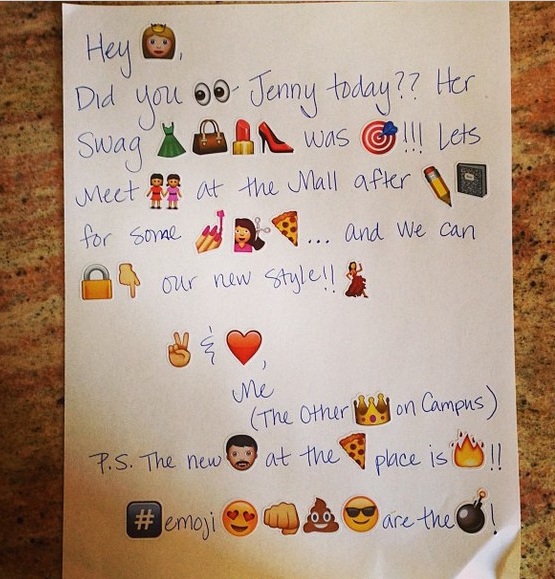 Hey 👸,
Did you 👀 Jenny today?? Her
Swag 👗👜💄👠 was 🎯!!! Lets
Meet 👭 at the Mall after ✏️📓
for some 💅💇🍕... and we can
🔒👇 our new style!! 💃
✌️ & ❤️,
Me
(The Other 👑 on Campus)
P.S. The new 🧔 at the 🍕 place is 🔥!!
#️⃣ emoji 😍👊💩😎 are the 💣!